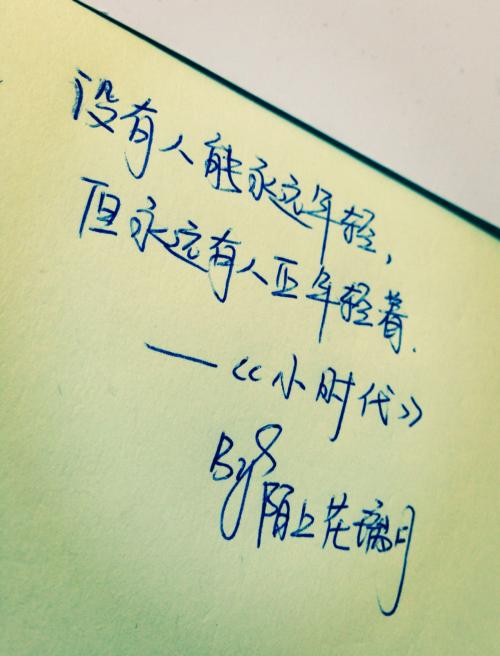 没有人能永远年轻，
但永远有人正年轻着.
—《小时代》
By 陌上花璃月